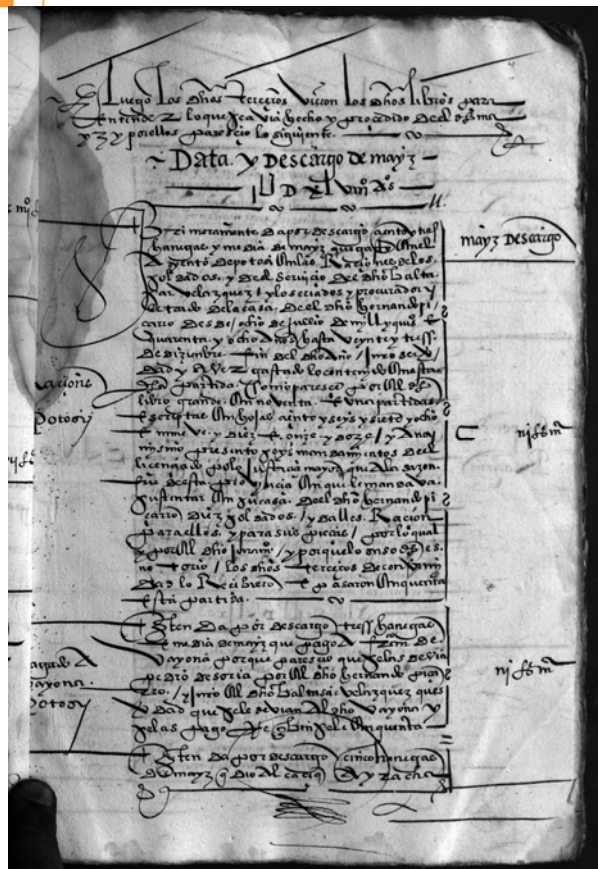 E luego los dhos terceros vieron los dhos libros para
entender lo que se avia hecho y procedido del dho ma
yz y por ellos parescio lo siguiente
Data. y Descargo de mayz
U D xl viii As
mayz Descargo
Primeramente da por descargo ciento y tres
hanegas y media de mayz que gasto en el
asiento de potosi en las Raciones de los
soldados. y del servicio del dho balta
sar velazquez / y los criados y procurador y
letrado de la casa. del dho hernando pi
carro desde / ocho de jullio de mill y quis e
quarenta. y ocho años hasta veynte y tres
de dizienbre fin del dho año / juro ser
dad y aver gastado lo contenido en esta
dha partida. como paresce por el dho
libro grande. en noventa. e una partidas
escriptas en hojas ciento y seys y siete y ocho
e nueve. y diez e onze. y doze / y ansi
mismo presento seys mandamientos del
licenciado polo justicia mayor que a la sazon
fue desta provincia en que le mandava
sustentar en su casa. del dho hernando pi
carro diez soldados / y dalles. Racion
para ellos. y para sus piecas / por lo qual
y por el dho juramto / y porque lo susodho es
notorio / los dhos terceros de conformi
dad lo Recibieron e pasaron en quenta
esta partida.
Racione
Potosi
Yten da por descargo tres hanegas
e media de mayz que pago a frco de
vayona porque parescio que se las devia
pedro de soria por el dho hernando picar
ro. / y juro el dho baltasar velazquez ques
verdad que se le devian al dho vayona y
se las pago Recibiosele en quenta
pagado A
vayona.
Potosi
Yten da por descargo cinco hanegas
de mayz q dio al caciq Ayrache